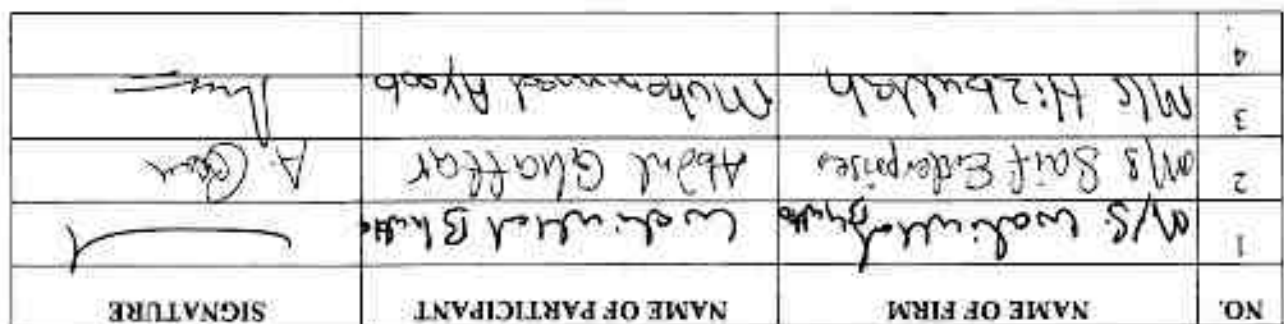 NO. NAME OF FIRM NAME OF PARTICIPANT SIGNATURE
1 M/S. Bhutto Bhutto
2 M/S Saif Enterprises Abdul Ghaffar A.
3 M/S Hizbullah Muhammad Ayoob
4